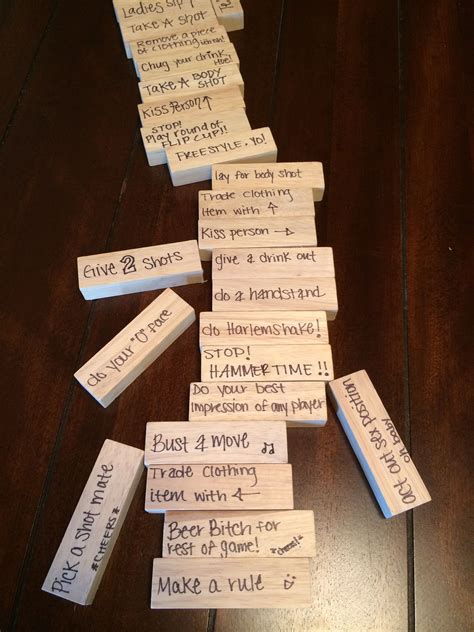 Ladies Sip!
Take A Shot
Remove a piece
of clothing
Chug your drink
Hoe!
TAKE A BODY
SHOT
Kiss Person ↑
STOP!
Play round of
FLIP CUP!!
FREESTYLE. Yo!
lay for body shot
Trade clothing
Item with ↑
Kiss person →
Give 2 shots
give a drink out
do a handstand
do your "O" face
do Harlemshake!
STOP!
HAMMERTIME!!
Do your best
impression of any player
act out sex position
oh baby
Bust a move ♫
Trade Clothing
item with ←
Pick a shot mate
*CHEERS*
Beer Bitch for
rest of game! *cheers!*
Make a rule